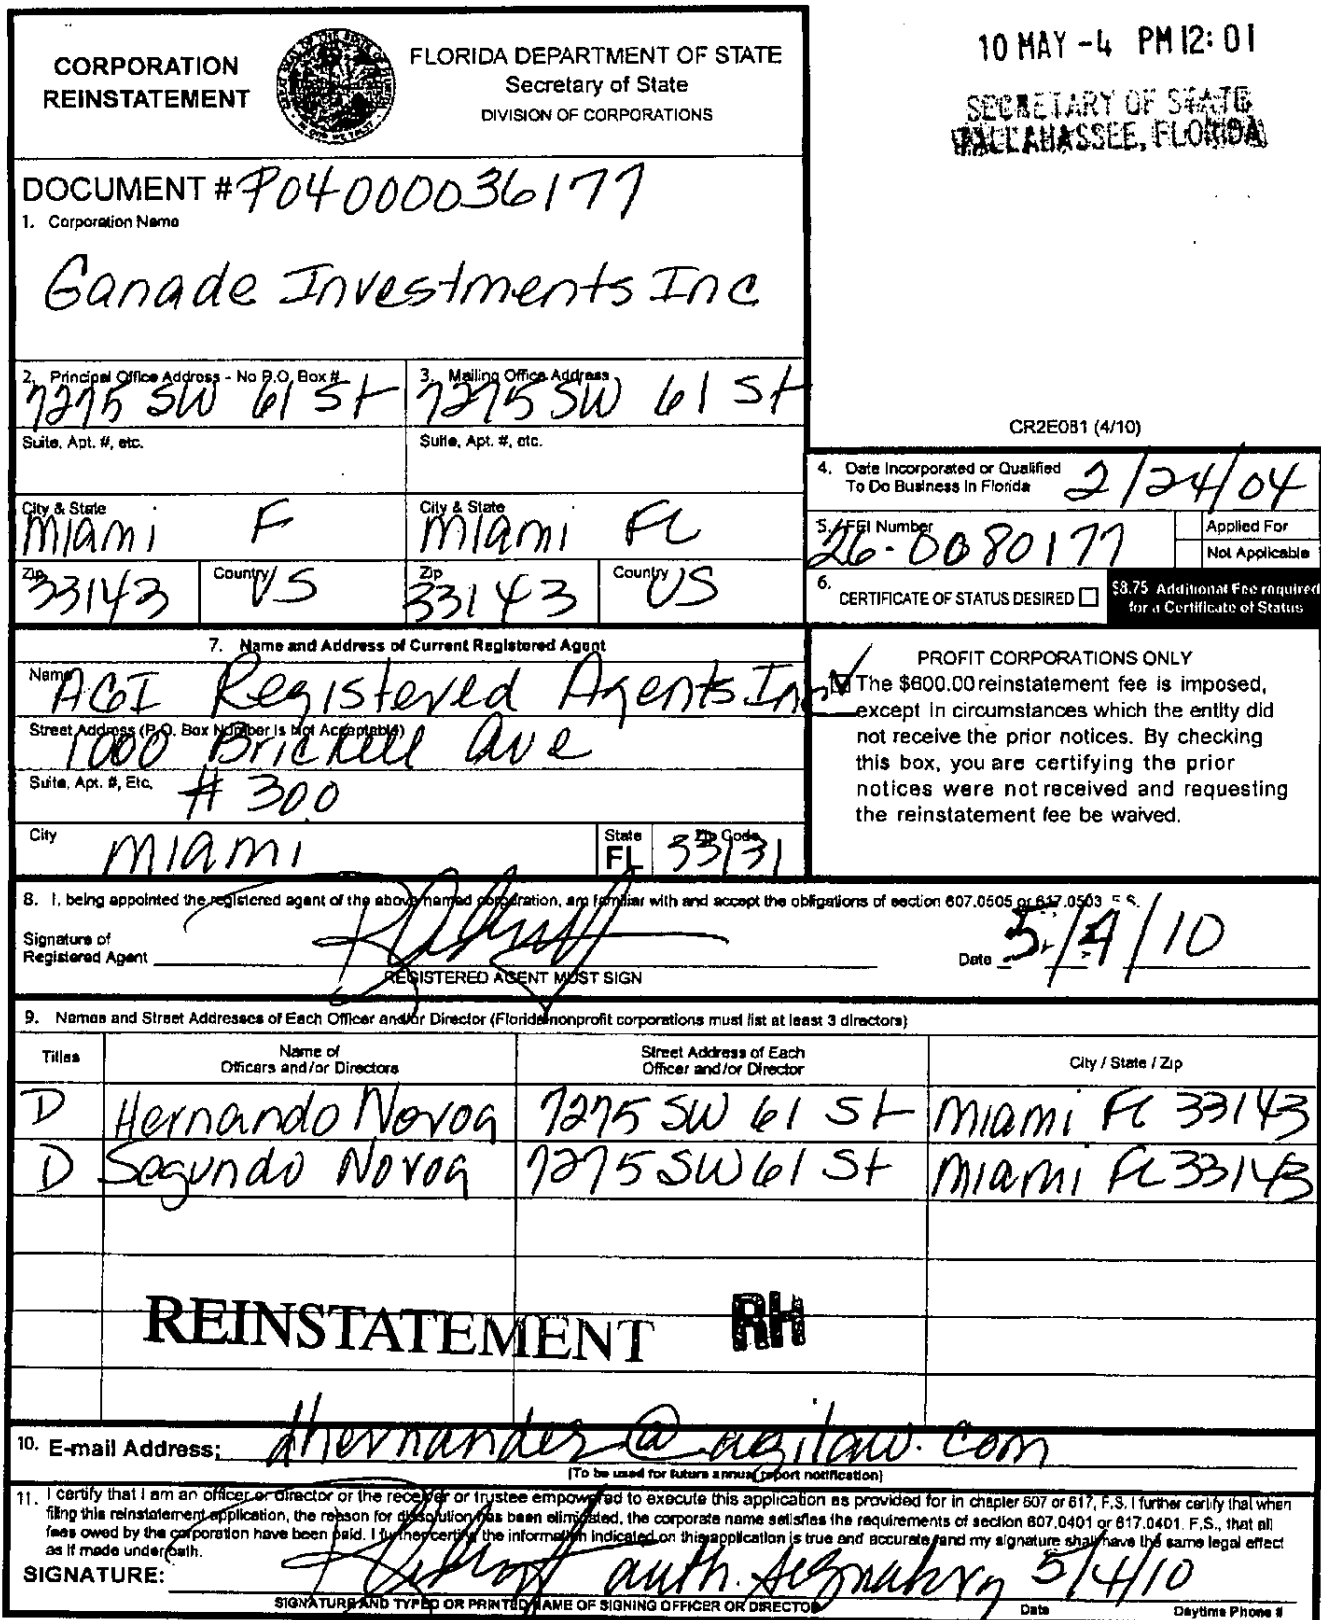 10 MAY -4 PM 12: 01
SECRETARY OF STATE
TALLAHASSEE, FLORIDA
CORPORATION
REINSTATEMENT
FLORIDA DEPARTMENT OF STATE
Secretary of State
DIVISION OF CORPORATIONS
DOCUMENT # P04000036177
1. Corporation Name
Ganade Investments Inc
2. Principal Office Address - No P.O. Box #
7275 SW 61 St
3. Mailing Office Address
7275 SW 61 St
Suite, Apt. #, etc.
Suite, Apt. #, etc.
City & State
Miami F
City & State
Miami FL
Zip
33143
Country
US
Zip
33143
Country
US
CR2E081 (4/10)
4. Date Incorporated or Qualified
To Do Business in Florida
2/24/04
5. FEI Number
26-0080177
Applied For
Not Applicable
6. CERTIFICATE OF STATUS DESIRED
$8.75 Additional Fee required
for a Certificate of Status
7. Name and Address of Current Registered Agent
Name
AGI Registered Agents Inc
Street Address (P.O. Box Number is Not Acceptable)
1000 Brickell Ave
Suite, Apt. #, Etc.
# 300
City
Miami
State
FL
Zip Code
33131
PROFIT CORPORATIONS ONLY
The $600.00 reinstatement fee is imposed,
except in circumstances which the entity did
not receive the prior notices. By checking
this box, you are certifying the prior
notices were not received and requesting
the reinstatement fee be waived.
8. I, being appointed the registered agent of the above named corporation, am familiar with and accept the obligations of section 607.0505 or 617.0503 F.S.
Signature of
Registered Agent
REGISTERED AGENT MUST SIGN
Date 5/4/10
9. Names and Street Addresses of Each Officer and/or Director (Florida nonprofit corporations must list at least 3 directors)
Titles
Name of
Officers and/or Directors
Street Address of Each
Officer and/or Director
City / State / Zip
D Hernando Novoa 7275 SW 61 St Miami FL 33143
D Segundo Novoa 7275 SW 61 St Miami FL 33143
REINSTATEMENT RH
10. E-mail Address: dhernandez@agilaw.com
(To be used for future annual report notification)
11. I certify that I am an officer or director or the receiver or trustee empowered to execute this application as provided for in chapter 607 or 617, F.S. I further certify that when
filing this reinstatement application, the reason for dissolution has been eliminated, the corporate name satisfies the requirements of section 607.0401 or 617.0401. F.S., that all
fees owed by the corporation have been paid. I further certify the information indicated on this application is true and accurate and my signature shall have the same legal effect
as if made under oath.
SIGNATURE: auth. signatory 5/4/10
SIGNATURE AND TYPED OR PRINTED NAME OF SIGNING OFFICER OR DIRECTOR
Date
Daytime Phone #